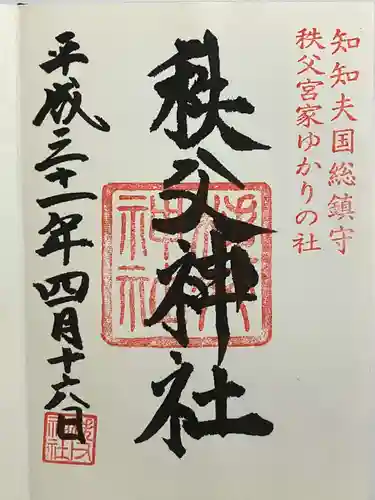 知知夫国総鎮守
秩父宮家ゆかりの社
秩父神社
平成三十一年四月十六日
秩父神社